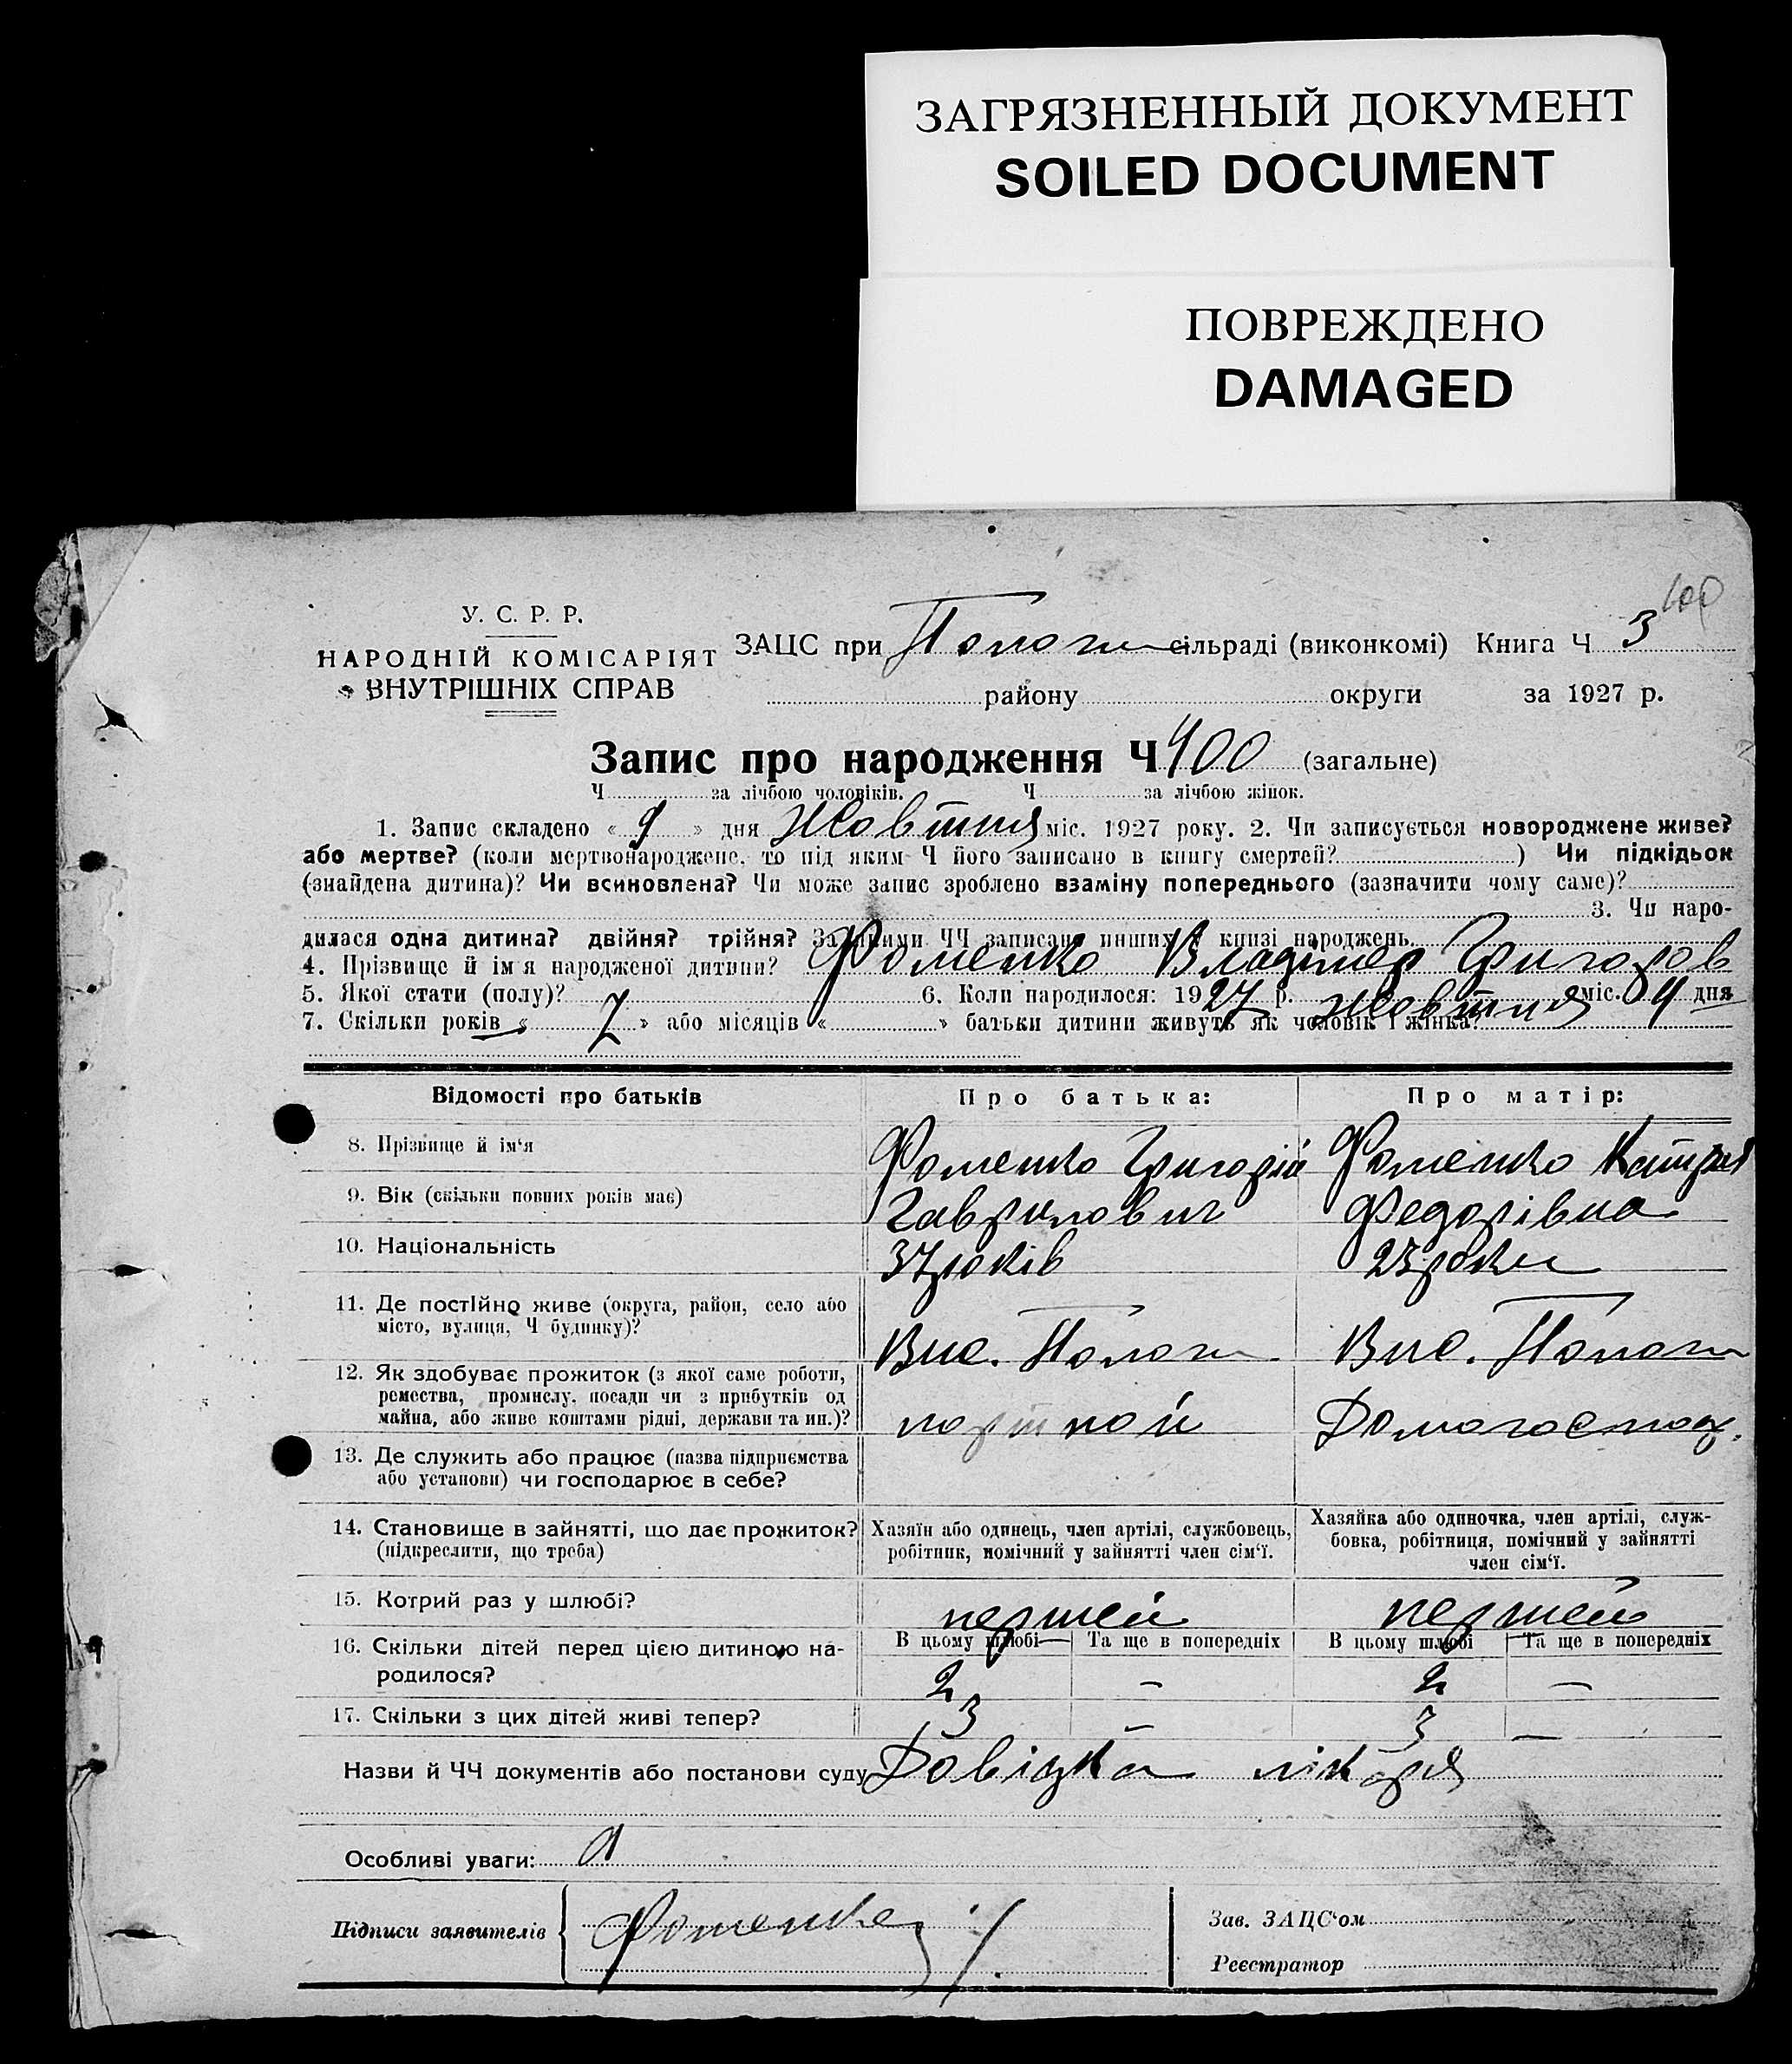 ЗАГРЯЗНЕННЫЙ ДОКУМЕНТ
SOILED DOCUMENT
ПОВРЕЖДЕНО
DAMAGED
У. С. Р. Р.
НАРОДНІЙ КОМІСАРІЯТ
ВНУТРІШНІХ СПРАВ
ЗАЦС при Пологи сільраді (виконкомі) Книга Ч 3
району округи за 1927 р.
Запис про народження Ч 400 (загальне)
Ч за лічбою чоловіків. Ч за лічбою жінок.
1. Запис складено « 9 » дня Жовтня міс. 1927 року. 2. Чи записується новороджене живе?
або мертве? (коли мертвонароджене, то під яким Ч його записано в книгу смертей? ) Чи підкідьок
(знайдена дитина)? Чи всиновлена? Чи може запис зроблено взаміну попереднього (зазначити чому саме)?
3. Чи наро-
дилася одна дитина? двійня? трійня? За якими ЧЧ записано инших в книзі народжень
4. Прізвище й ім'я народженої дитини? Фоменко Владімер Григоров
5. Якої стати (полу)? 6. Коли народилося: 1927 р. Жовтня міс. 4 дня
7. Скільки років « 7 » або місяців « » батьки дитини живуть як чоловік і жінка?
Відомості про батьків Про батька: Про матір:
8. Прізвище й ім'я Фоменко Григорій Фоменко
9. Вік (скільки повних років має) Гаврилович Федорівна
10. Національність 37 років 23 роки
11. Де постійно живе (округа, район, село або
місто, вулиця, Ч будинку)? Вис. Пологи Вис. Пологи
12. Як здобуває прожиток (з якої саме роботи,
ремества, промислу, посади чи з прибутків од
майна, або живе коштами рідні, держави та ин.)? портной Домогоспод.
13. Де служить або працює (назва підприємства
або установи) чи господарює в себе?
14. Становище в зайнятті, що дає прожиток? Хазяїн або одинець, член артілі, службовець, Хазяйка або одиночка, член артілі, служ-
(підкреслити, що треба) робітник, помічний у зайнятті член сім'ї. бовка, робітниця, помічний у зайнятті
член сім'ї.
15. Котрий раз у шлюбі? першей першей
16. Скільки дітей перед цією дитиною на- В цьому шлюбі Та ще в попередніх В цьому шлюбі Та ще в попередніх
родилося? 2 — 2 —
17. Скільки з цих дітей живі тепер? 3 — 3 —
Назви й ЧЧ документів або постанови суду Довідка лікаря
Особливі уваги:
Підписи заявителів Фоменко
Зав. ЗАЦС'ом
Реєстратор